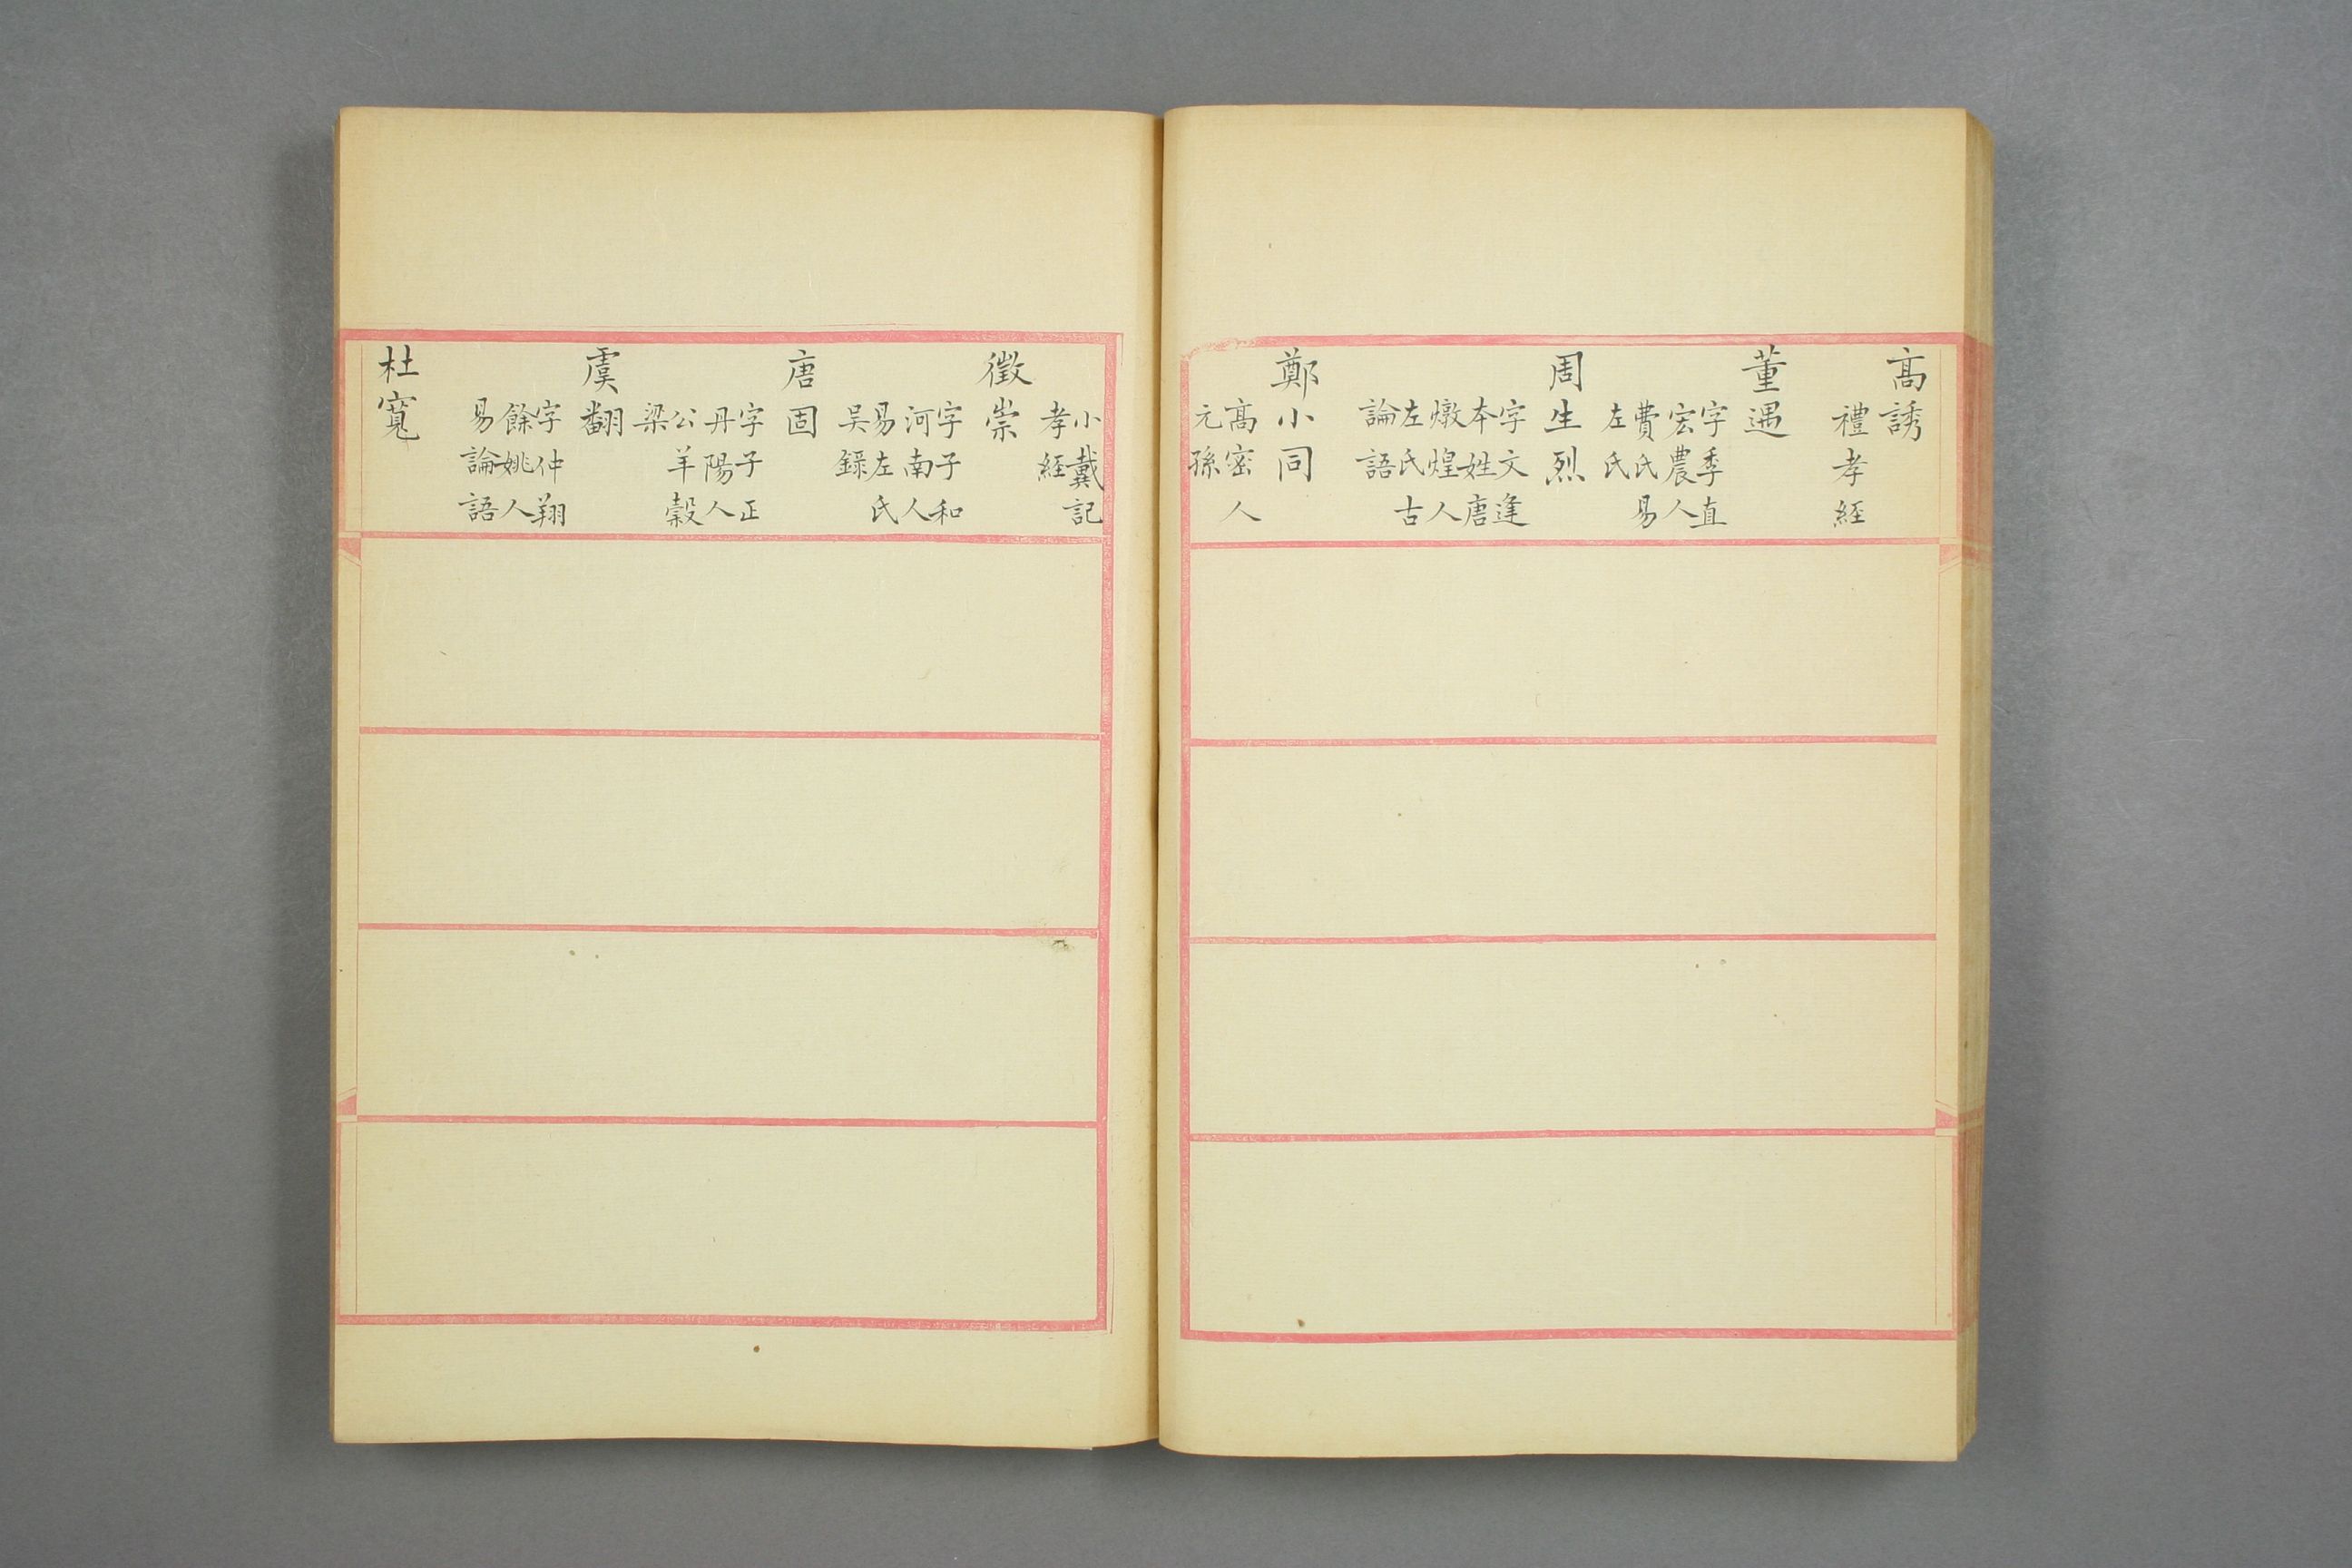 高誘
禮孝經
董遇
字季直
宏農人
費氏易
左氏
周生烈
字文逢
本姓唐
燉煌人
左氏古
論語
鄭小同
高密人
元孫
小戴記
孝經
徵崇
字子和
河南人
易左氏
吳錄
唐固
字子正
丹陽人
公羊穀
梁
虞翻
字仲翔
餘姚人
易論語
杜寬